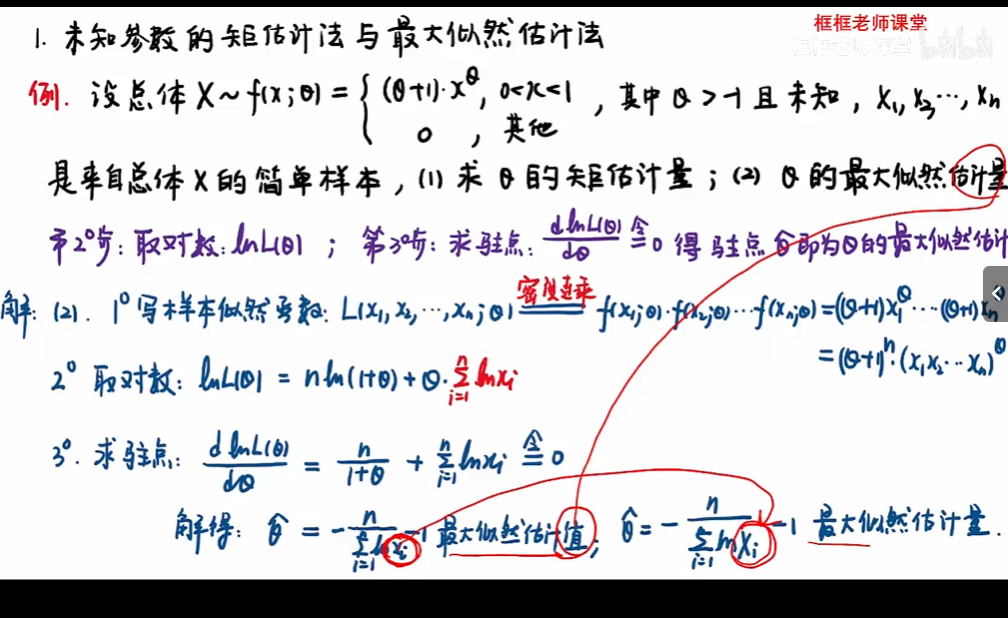 框框老师课堂
框框老师课堂 bilibili
1. 未知参数的矩估计法与最大似然估计法
例. 设总体 X ~ f(x;θ) = { (θ+1)·x^θ, 0<x<1 , 其中 θ>-1 且未知, X₁, X₂, ⋯, Xₙ
0 , 其他
是来自总体 X 的简单样本, (1) 求 θ 的矩估计量; (2) θ 的最大似然估计量
第2°步: 取对数: lnL(θ) ; 第3°步: 求驻点: d lnL(θ)/dθ ≙ 0 得驻点 θ̂ 即为θ的最大似然估计
解: (2). 1° 写样本似然函数: L(x₁, x₂, ⋯, xₙ; θ) 密度连乘 = f(x₁;θ)·f(x₂;θ)⋯f(xₙ;θ) = (θ+1)x₁^θ ⋯ (θ+1)xₙ^θ
= (θ+1)ⁿ·(x₁x₂⋯xₙ)^θ
2° 取对数: lnL(θ) = n ln(1+θ) + θ·∑ᵢ₌₁ⁿ ln xᵢ
3°. 求驻点: d lnL(θ)/dθ = n/(1+θ) + ∑ᵢ₌₁ⁿ ln xᵢ ≙ 0
解得: θ̂ = -n/(∑ᵢ₌₁ⁿ ln xᵢ) -1 最大似然估计值; θ̂ = -n/(∑ᵢ₌₁ⁿ ln Xᵢ) -1 最大似然估计量.